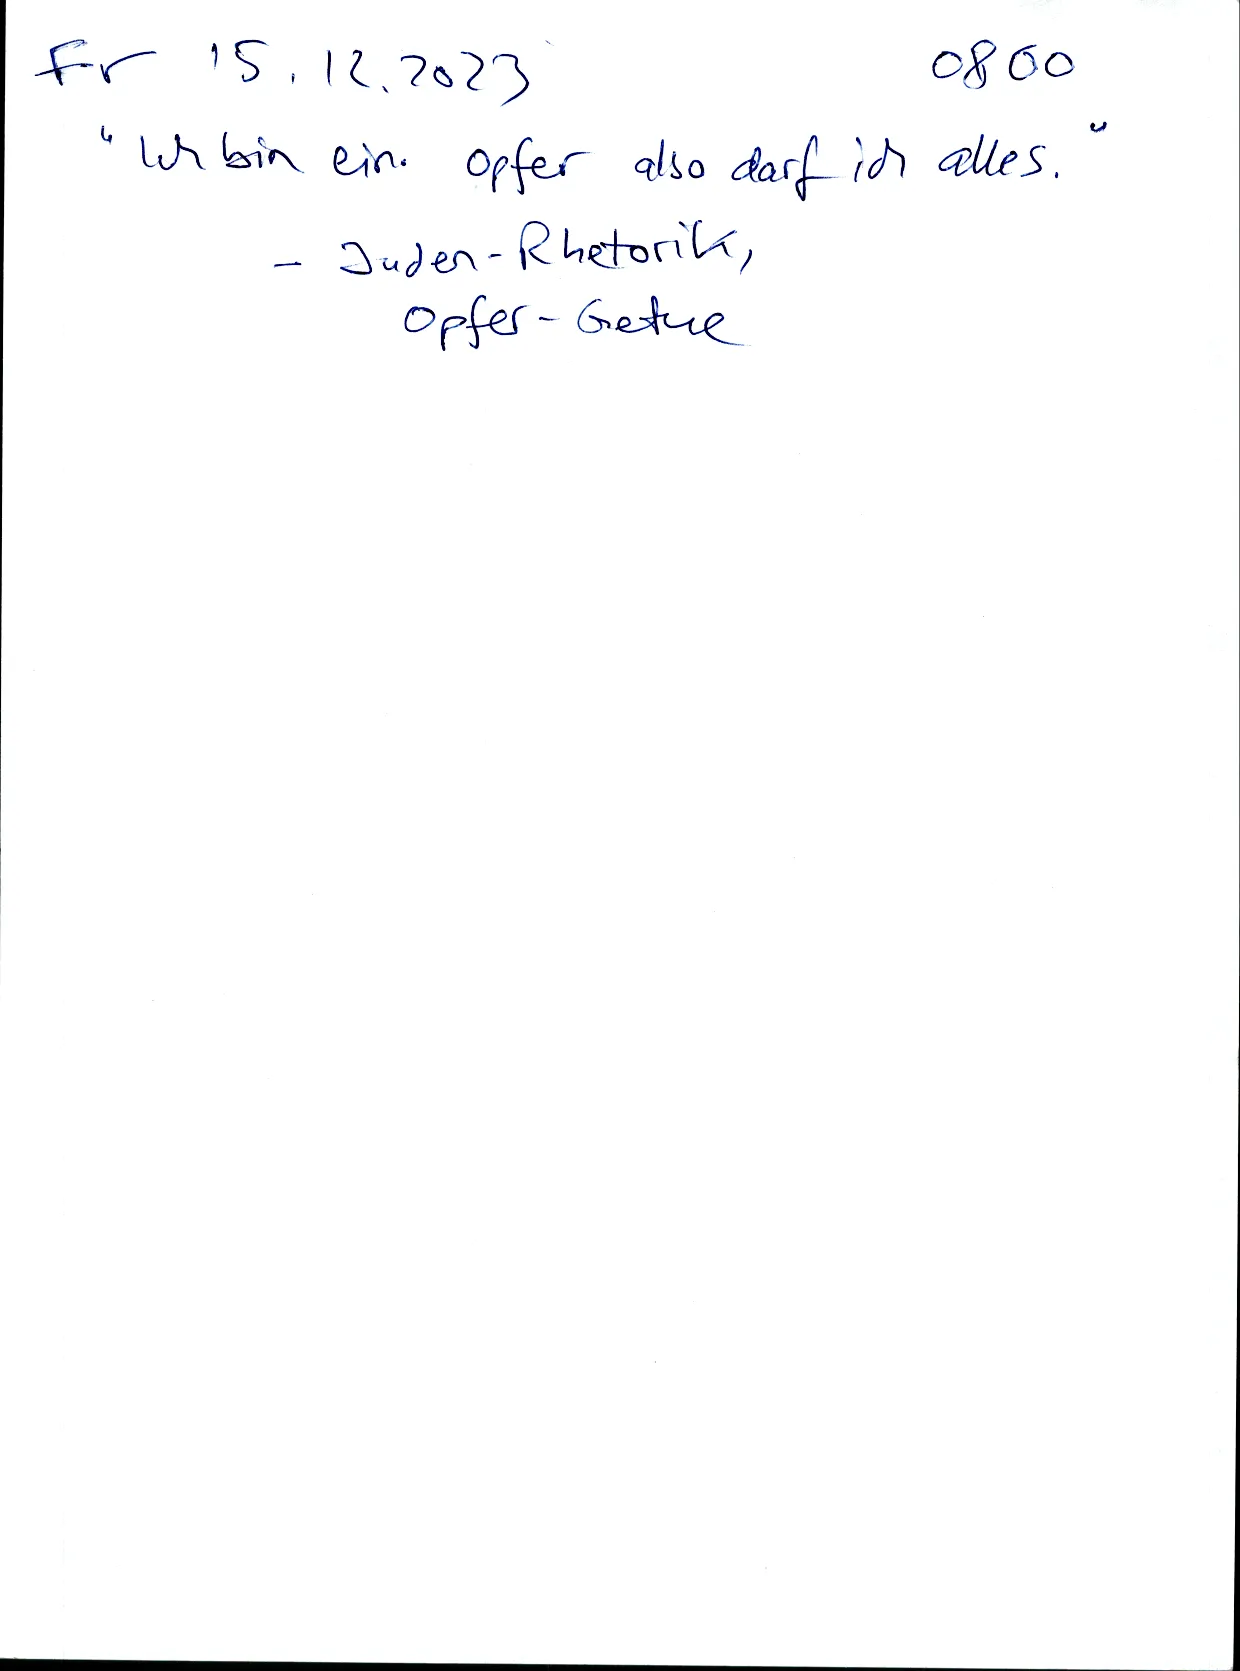 Fr 15.12.2023 0800
"Ich bin ein. opfer also darf ich alles."
- Juden-Rhetorik,
Opfer-Getue